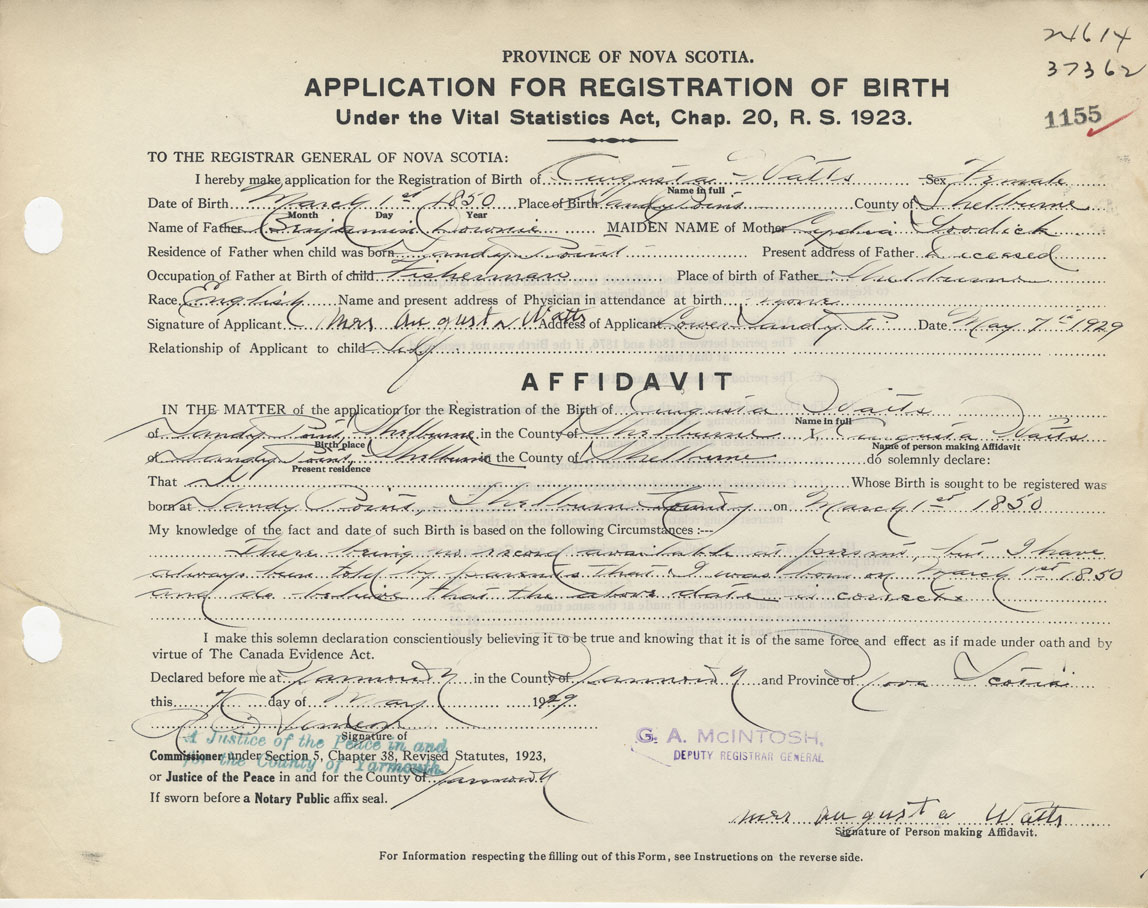 24614
37362
1155
PROVINCE OF NOVA SCOTIA.
APPLICATION FOR REGISTRATION OF BIRTH
Under the Vital Statistics Act, Chap. 20, R. S. 1923.
TO THE REGISTRAR GENERAL OF NOVA SCOTIA:
I hereby make application for the Registration of Birth of Augusta Watts Sex Female
Name in full
Date of Birth March 1st 1850 Place of Birth Sandy Point County of Shelburne
Month Day Year
Name of Father Benjamin Downie MAIDEN NAME of Mother Lydia Goodick
Residence of Father when child was born Sandy Point Present address of Father Deceased
Occupation of Father at Birth of child Fisherman Place of birth of Father Shelburne
Race English Name and present address of Physician in attendance at birth
Signature of Applicant Mrs Augusta Watts Address of Applicant Lower Sandy Pt. Date May 7th 1929
Relationship of Applicant to child Self
AFFIDAVIT
IN THE MATTER of the application for the Registration of the Birth of Augusta Watts
Name in full
of Sandy Point, Shelburne in the County of Shelburne I, Augusta Watts
Birth place Name of person making Affidavit
of Sandy Point, Shelburne in the County of Shelburne do solemnly declare:
Present residence
That I Whose Birth is sought to be registered was
born at Sandy Point, Shelburne County on March 1st 1850
My knowledge of the fact and date of such Birth is based on the following Circumstances :--
There being no record available at present, but I have
always been told by parents that I was born on March 1st 1850
and do believe that the above date is correct
I make this solemn declaration conscientiously believing it to be true and knowing that it is of the same force and effect as if made under oath and by
virtue of The Canada Evidence Act.
Declared before me at Yarmouth in the County of Yarmouth and Province of Nova Scotia
this 7 day of May 1929
Signature of
A Justice of the Peace in and
for the County of Yarmouth
Commissioner under Section 5, Chapter 38, Revised Statutes, 1923,
or Justice of the Peace in and for the County of Yarmouth
If sworn before a Notary Public affix seal.
G. A. McINTOSH,
DEPUTY REGISTRAR GENERAL
Mrs Augusta Watts
Signature of Person making Affidavit.
For Information respecting the filling out of this Form, see Instructions on the reverse side.